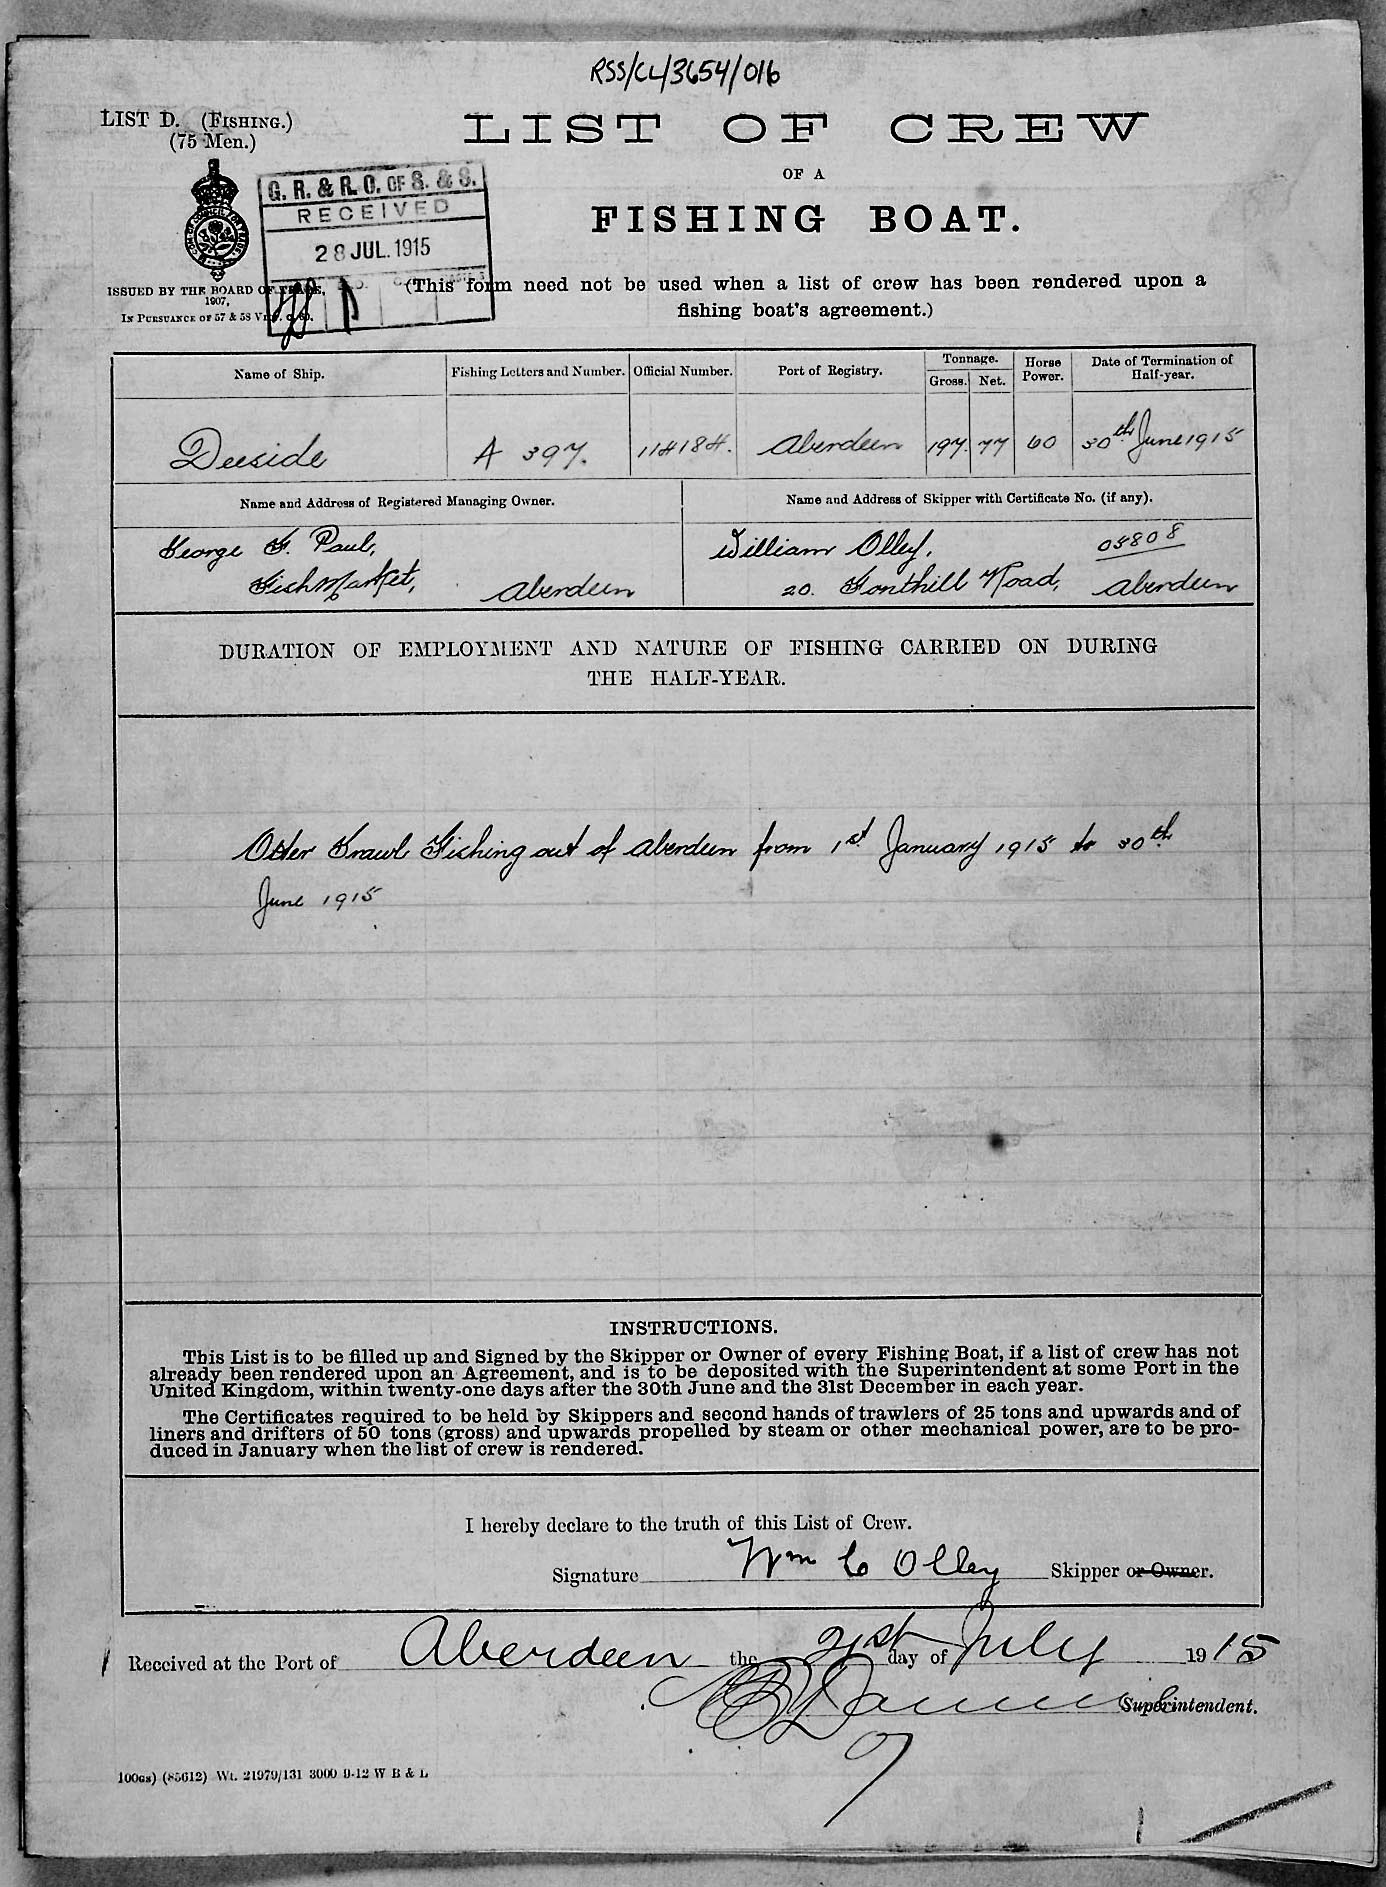 RSS/CL/3654/016
LIST D. (FISHING.)
(75 Men.)
LIST OF CREW
OF A
FISHING BOAT.
G. R. & R. O. OF S. & S.
RECEIVED
28 JUL. 1915
ISSUED BY THE BOARD OF TRADE,
1907,
IN PURSUANCE OF 57 & 58 VICT. c. 60.
(This form need not be used when a list of crew has been rendered upon a
fishing boat's agreement.)
Name of Ship. Fishing Letters and Number. Official Number. Port of Registry. Tonnage. Gross. Net. Horse Power. Date of Termination of Half-year.
Deeside A 397. 114184. Aberdeen 197. 77 60 30th June 1915
Name and Address of Registered Managing Owner. Name and Address of Skipper with Certificate No. (if any).
George F. Paul, William Olley, 05808
Fishmarket, Aberdeen 20. Fonthill Road, Aberdeen
DURATION OF EMPLOYMENT AND NATURE OF FISHING CARRIED ON DURING
THE HALF-YEAR.
Otter Trawl Fishing out of Aberdeen from 1st January 1915 to 30th
June 1915
INSTRUCTIONS.
This List is to be filled up and Signed by the Skipper or Owner of every Fishing Boat, if a list of crew has not
already been rendered upon an Agreement, and is to be deposited with the Superintendent at some Port in the
United Kingdom, within twenty-one days after the 30th June and the 31st December in each year.
The Certificates required to be held by Skippers and second hands of trawlers of 25 tons and upwards and of
liners and drifters of 50 tons (gross) and upwards propelled by steam or other mechanical power, are to be pro-
duced in January when the list of crew is rendered.
I hereby declare to the truth of this List of Crew.
Signature Wm C Olley Skipper or Owner.
Received at the Port of Aberdeen the 21st day of July 1915
Superintendent.
100GS) (85612) Wt. 21979/131 3000 9-12 W B & L